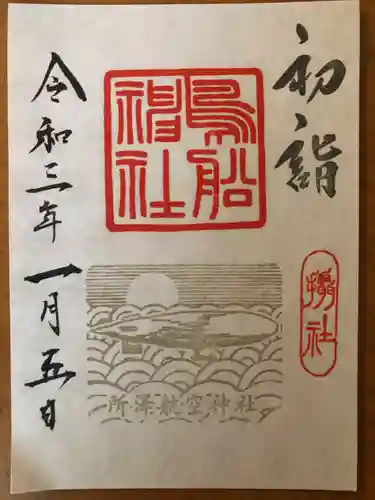 初詣
鳥船
神社
摂社
令和三年一月五日
所澤航空神社